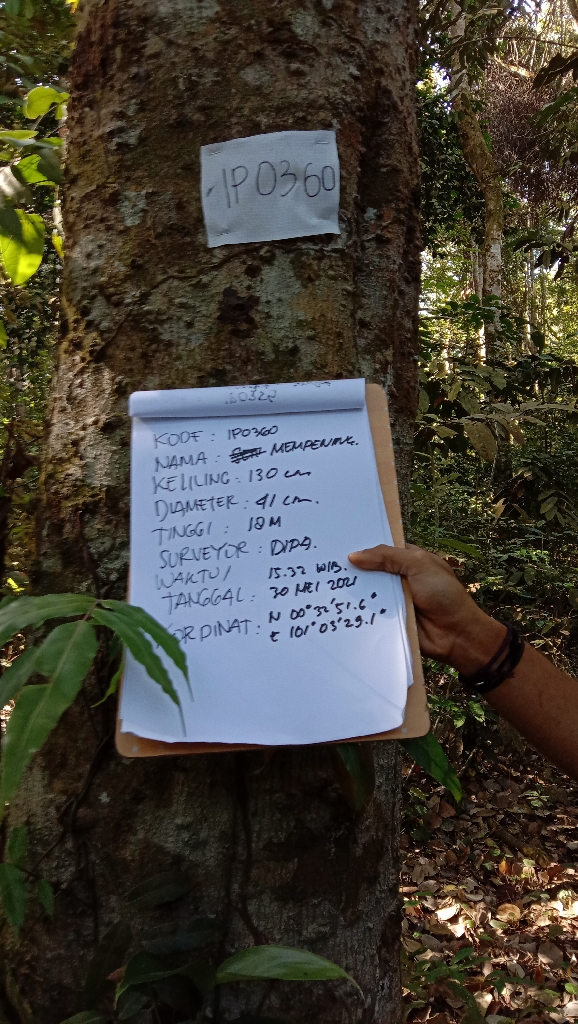 IP0360
KODE : IP0360
NAMA : MEMPENING.
KELILING : 130 cm
DIAMETER : 41 cm.
TINGGI : 18 M
SURVEYOR : DIDA.
WAKTU / 15.32 WIB.
TANGGAL : 30 MEI 2021
KORDINAT : N 00° 32' 51.6"
E 101° 03' 29.1"